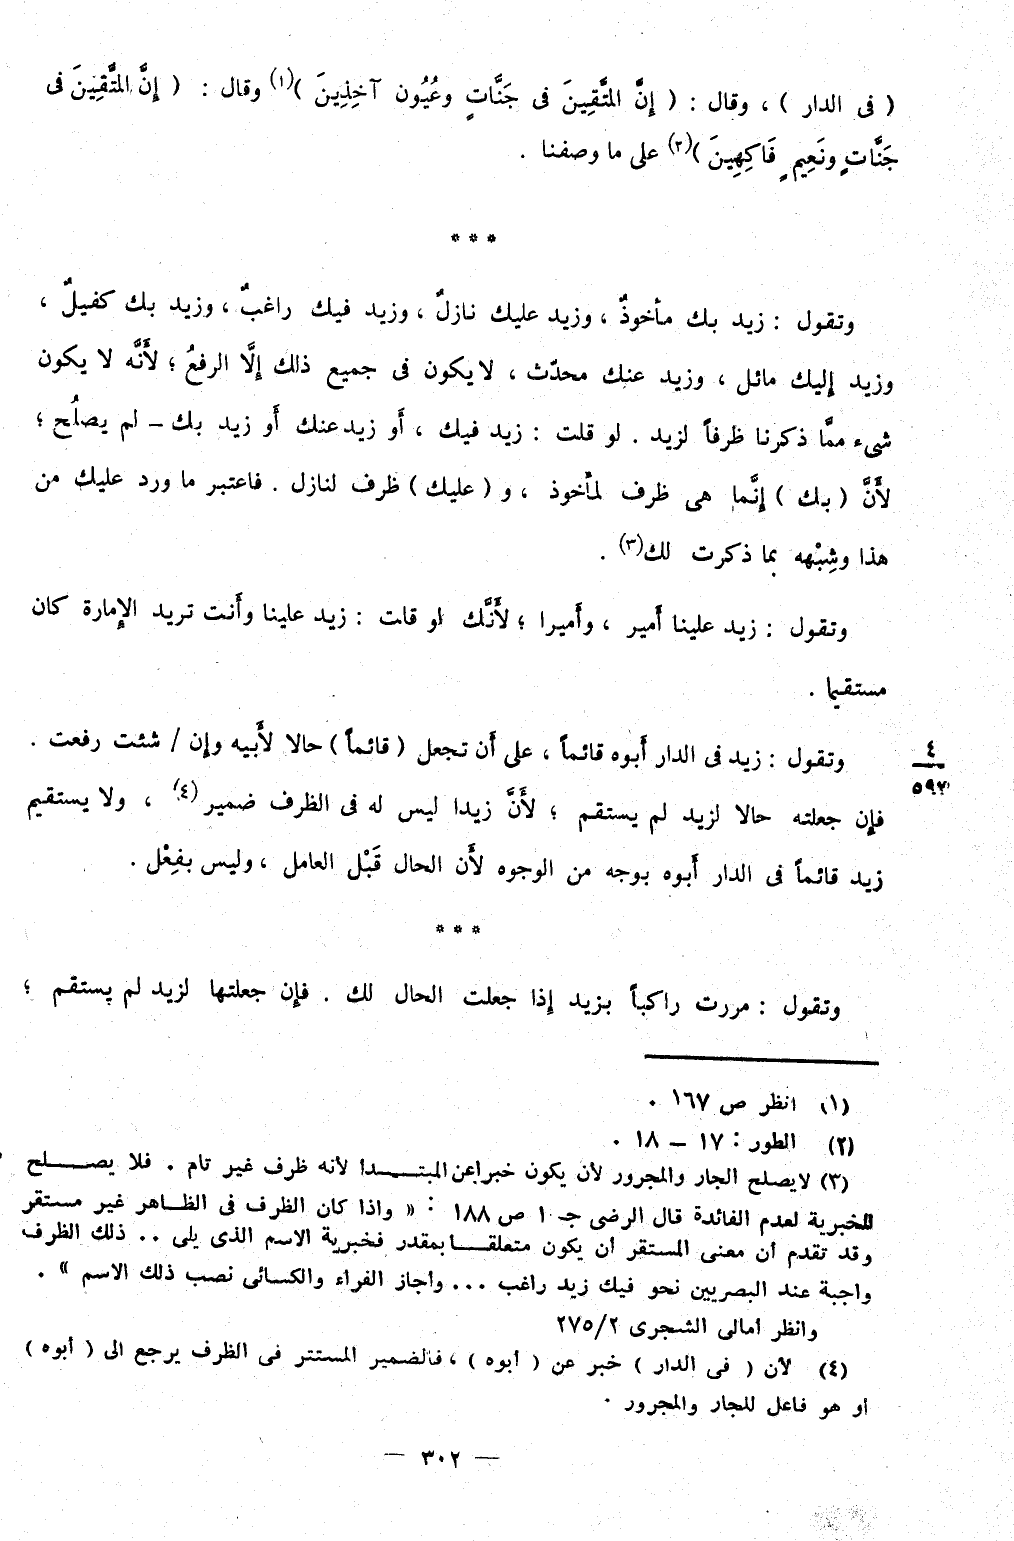 ( فى الدار ) ، وقال : ( إِنَّ المتَّقِينَ فى جَنَّاتٍ وعُيُون آخِذِينَ )(١) وقال : ( إِنَّ المتَّقِينَ فى
جَنَّاتٍ ونَعِيمٍ فَاكِهِينَ )(٢) على ما وصفنا .
* * *
وتقول : زيد بك مأخوذٌ ، وزيد عليك نازلٌ ، وزيد فيك راغبٌ ، وزيد بك كفيلٌ ،
وزيد إليك مائل ، وزيد عنك محدّث ، لا يكون فى جميع ذلك إلَّا الرفعُ ؛ لأَنَّه لا يكون
شىء ممَّا ذكرنا ظرفاً لزيد . لو قلت : زيد فيك ، أَو زيد عنك أَو زيد بك – لم يصلُح ؛
لأَنَّ ( بك ) إنَّما هى ظرف لمأْخوذ ، و ( عليك ) ظرف لنازل . فاعتبر ما ورد عليك من
هذا وشِبْهه بما ذكرت لك(٣) .
وتقول : زيد علينا أَمير ، وأَميرا ؛ لأَنَّك لو قلت : زيد علينا وأَنت تريد الإِمارة كان
مستقيما .
وتقول : زيد فى الدار أَبوه قائماً ، على أَن تجعل ( قائماً ) حالا لأَبيه وإن / شئت رفعت .
٤
٥٩٧
فإِن جعلته حالا لزيد لم يستقم ؛ لأَنَّ زيدا ليس له فى الظرف ضمير(٤) ، ولا يستقيم
زيد قائماً فى الدار أَبوه بوجه من الوجوه لأَن الحال قَبْل العامل ، وليس بفِعْل .
* * *
وتقول : مررت راكباً بزيد إذا جعلت الحال لك . فإِن جعلتها لزيد لم يستقم ؛
(١) انظر ص ١٦٧ .
(٢) الطور : ١٧ – ١٨ .
(٣) لا يصلح الجار والمجرور لأن يكون خبرا عن المبتدا لأنه ظرف غير تام . فلا يصلح
للخبرية لعدم الفائدة قال الرضى جـ ١ ص ١٨٨ : « واذا كان الظرف فى الظاهر غير مستقر
وقد تقدم أن معنى المستقر أن يكون متعلقا بمقدر فخبرية الاسم الذى يلى .. ذلك الظرف
واجبة عند البصريين نحو فيك زيد راغب ... وأجاز الفراء والكسائى نصب ذلك الاسم » .
وانظر أمالى الشجرى ٢/٢٧٥
(٤) لأن ( فى الدار ) خبر عن ( أبوه ) ، فالضمير المستتر فى الظرف يرجع الى ( أبوه )
أو هو فاعل للجار والمجرور .
— ٣٠٢ —